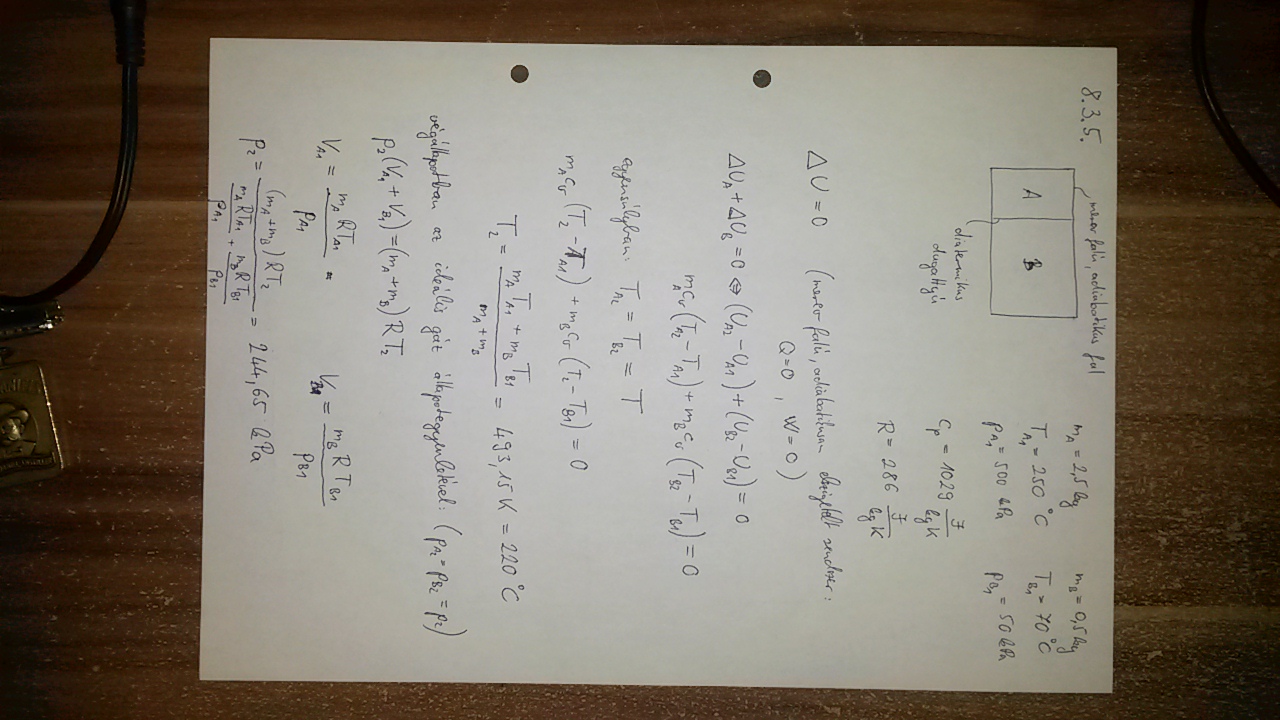 8.3.5.
merev falú, adiabatikus fal
A B
diatermikus
dugattyú
m_A = 2,5 kg m_B = 0,5 kg
T_A1 = 250 °C T_B1 = 70 °C
p_A1 = 500 kPa p_B1 = 50 kPa
c_p = 1029 J/kgK
R = 286 J/kgK
ΔU = 0 (merev falú, adiabatikusan szigetelt rendszer:
Q=0, W=0)
ΔU_A + ΔU_B = 0 ⇔ (U_A2 − U_A1) + (U_B2 − U_B1) = 0
m_A c_v (T_A2 − T_A1) + m_B c_v (T_B2 − T_B1) = 0
egyensúlyban: T_A2 = T_B2 = T
m_A c_v (T_2 − T_A1) + m_B c_v (T_2 − T_B1) = 0
T_2 = (m_A T_A1 + m_B T_B1)/(m_A + m_B) = 493,15 K = 220 °C
végállapotban az ideális gáz állapotegyenletével: (p_A2 = p_B2 = p_2)
p_2 (V_A1 + V_B1) = (m_A + m_B) R T_2
V_A1 = m_A R T_A1/p_A1 = V_B1 = m_B R T_B1/p_B1
p_2 = (m_A + m_B) R T_2/(m_A R T_A1/p_A1 + m_B R T_B1/p_B1) = 244,65 kPa